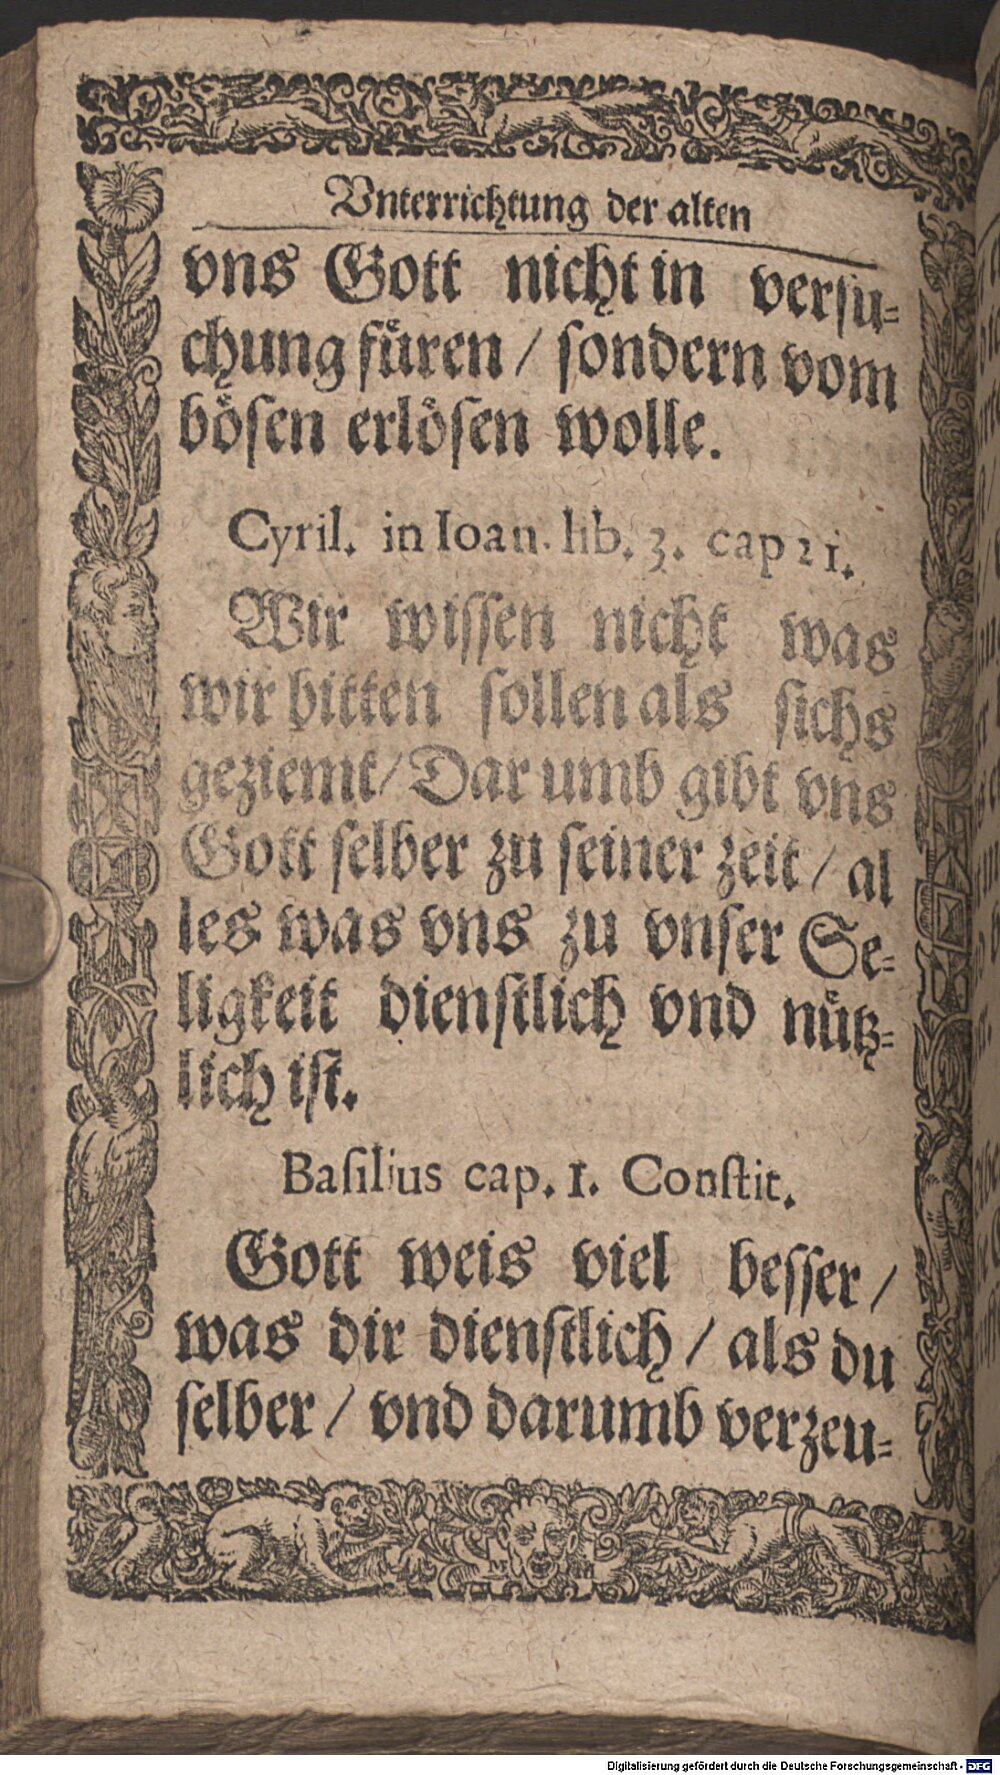 Vnterrichtung der alten
vns Gott nicht in versu-
chung fuͤren / sondern vom
boͤsen erloͤsen wolle.
Cyril. in Ioan. lib. 3. cap 21.
Wir wissen nicht was
wir bitten sollen als sichs
geziemt / Dar umb gibt vns
Gott selber zu seiner zeit / al
les was vns zu vnser Se-
ligkeit dienstlich vnd nuͤtz-
lich ist.
Basilius cap. 1. Constit.
Gott weis viel besser /
was dir dienstlich / als du
selber / vnd darumb verzeu-
Digitalisierung gefördert durch die Deutsche Forschungsgemeinschaft - DFG